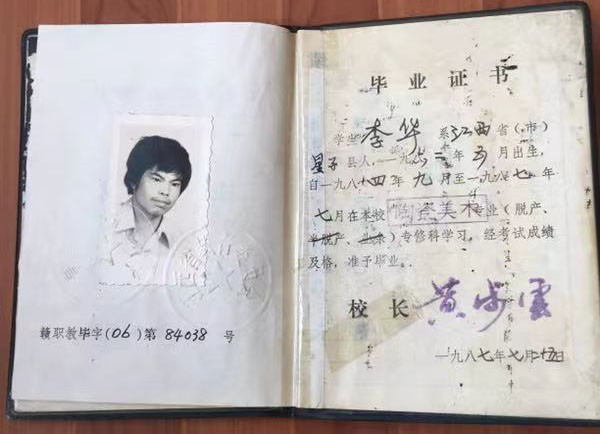 赣职教毕字(06)第 84038 号
毕业证书
学生 李华 系江西省(市)
星子县人,一九六二年五月出生,
自一九八十四年九月至一九八七年
七月在本校陶瓷美术专业(脱产、
半脱产、业余)专修科学习,经考试成绩
及格,准予毕业。
校长
一九八七年七月十五日